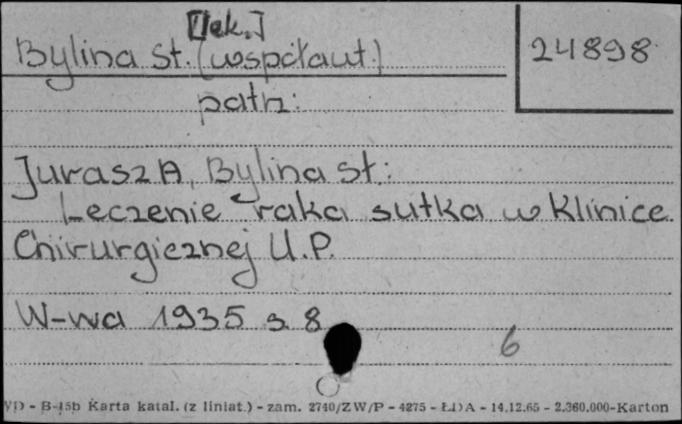 [lek.]
Bylina St. (współaut.)
24898
patrz:
Jurasz A, Bylina St.:
Leczenie raka sutka w Klinice
Chirurgicznej U.P.
W-wa 1935 s. 8
6
VD - B-15b Karta katal. (z liniat.) - zam. 2740/ZW/P - 4275 - ŁDA - 14.12.65 - 2.360.000-Karton